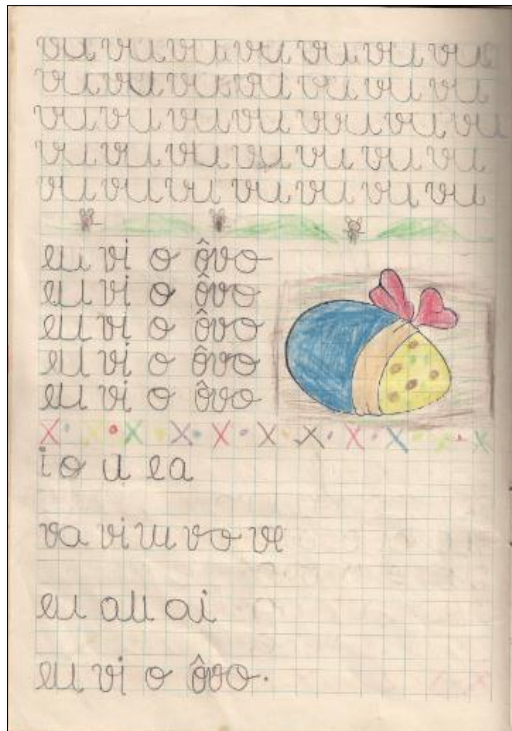 vu vu vu vu vu vu vu
vu vu vu vu vu vu vu
vu vu vu vu vu vu vu
vu vu vu vu vu vu vu
vu vu vu vu vu vu vu
eu vi o ôvo
eu vi o ôvo
eu vi o ôvo
eu vi o ôvo
eu vi o ôvo
i o u e a
va vi vu vo ve
eu au ai
eu vi o ôvo.